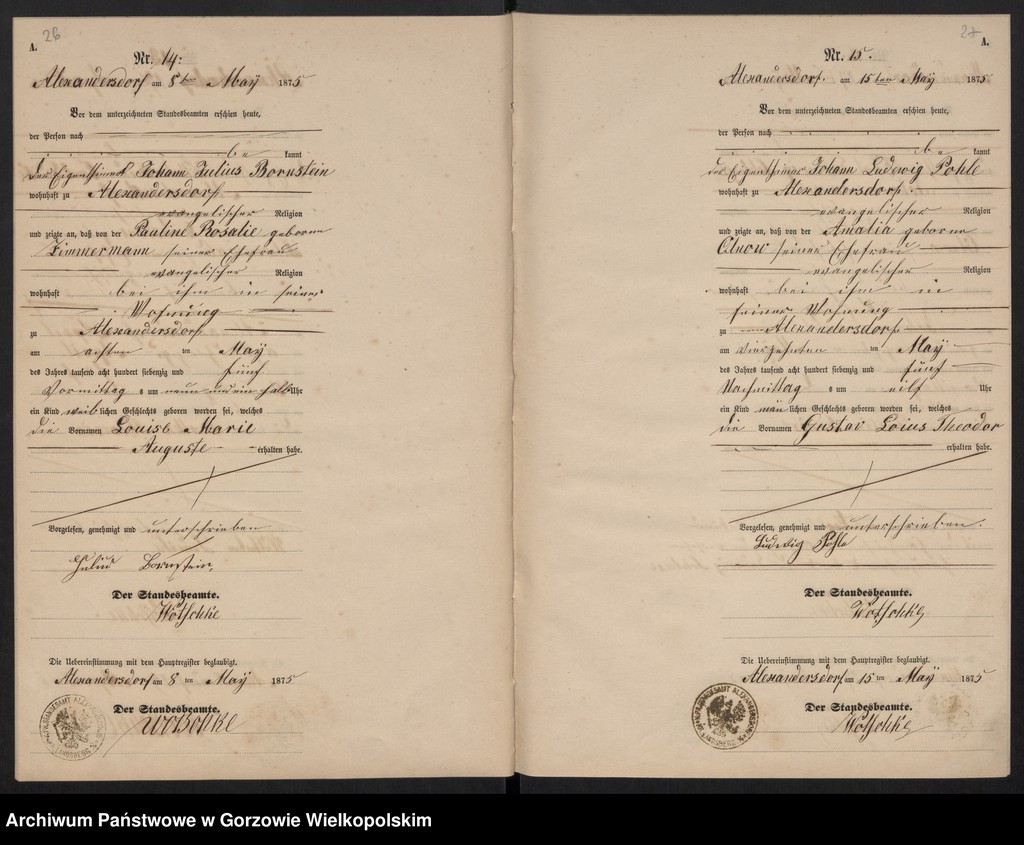 26
A.
Nr. 14:
Alexandersdorf am 8ten May 1875
Vor dem unterzeichneten Standesbeamten erschien heute,
der Person nach
be kannt
der Eigenthümer Johann Julius Bornstein
wohnhaft zu Alexandersdorf
evangelischer Religion
und zeigte an, daß von der Pauline Rosalie geborne
Zimmermann seiner Ehefrau
evangelischer Religion
wohnhaft bei ihm in seiner
Wohnung
zu Alexandersdorf
am achten ten May
des Jahres tausend acht hundert siebenzig und fünf
Vormittag s um neun und ein halb Uhr
ein Kind weib lichen Geschlechts geboren worden sei, welches
die Vornamen Louise Marie
Auguste erhalten habe.
Vorgelesen, genehmigt und unterschrieben
Julius Bornstein.
Der Standesbeamte.
Wotschke
Die Uebereinstimmung mit dem Hauptregister beglaubigt.
Alexandersdorf am 8 ten May 1875
Der Standesbeamte.
Wotschke
27
A.
Nr. 15.
Alexandersdorf. am 15ten May 1875
Vor dem unterzeichneten Standesbeamten erschien heute,
der Person nach
be kannt
der Eigenthümer Johann Ludewig Pohle
wohnhaft zu Alexandersdorf.
evangelischer Religion
und zeigte an, daß von der Amalia geborne
seiner Ehefrau
evangelischer Religion
wohnhaft bei ihm in
seiner Wohnung
zu Alexandersdorf
am vierzehnten ten May
des Jahres tausend acht hundert siebenzig und fünf
Nachmittag s um eilf Uhr
ein Kind män lichen Geschlechts geboren worden sei, welches
die Vornamen Gustav Loius Theodor
erhalten habe.
Vorgelesen, genehmigt und unterschrieben.
Ludwig Pohle
Der Standesbeamte.
Wotschke
Die Uebereinstimmung mit dem Hauptregister beglaubigt.
Alexandersdorf am 15 ten May 1875
Der Standesbeamte.
Wotschke
Archiwum Państwowe w Gorzowie Wielkopolskim